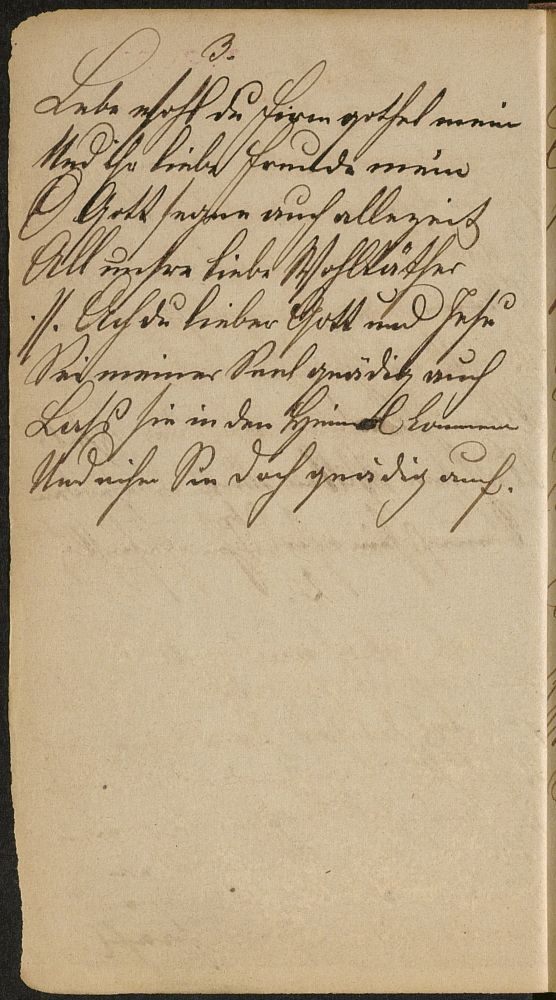 3.
Lebe wohl du Firmgothel mein
Und ihr liebe Freunde mein
O Gott segne auch allezeit
All unsre liebe Wohltäther
.//. Ach du lieber Gott und Jesu
Sei meiner Seel gnädig auch
Lass sie in den Himmel kommen
Und nihm Sie doch gnädig auf.